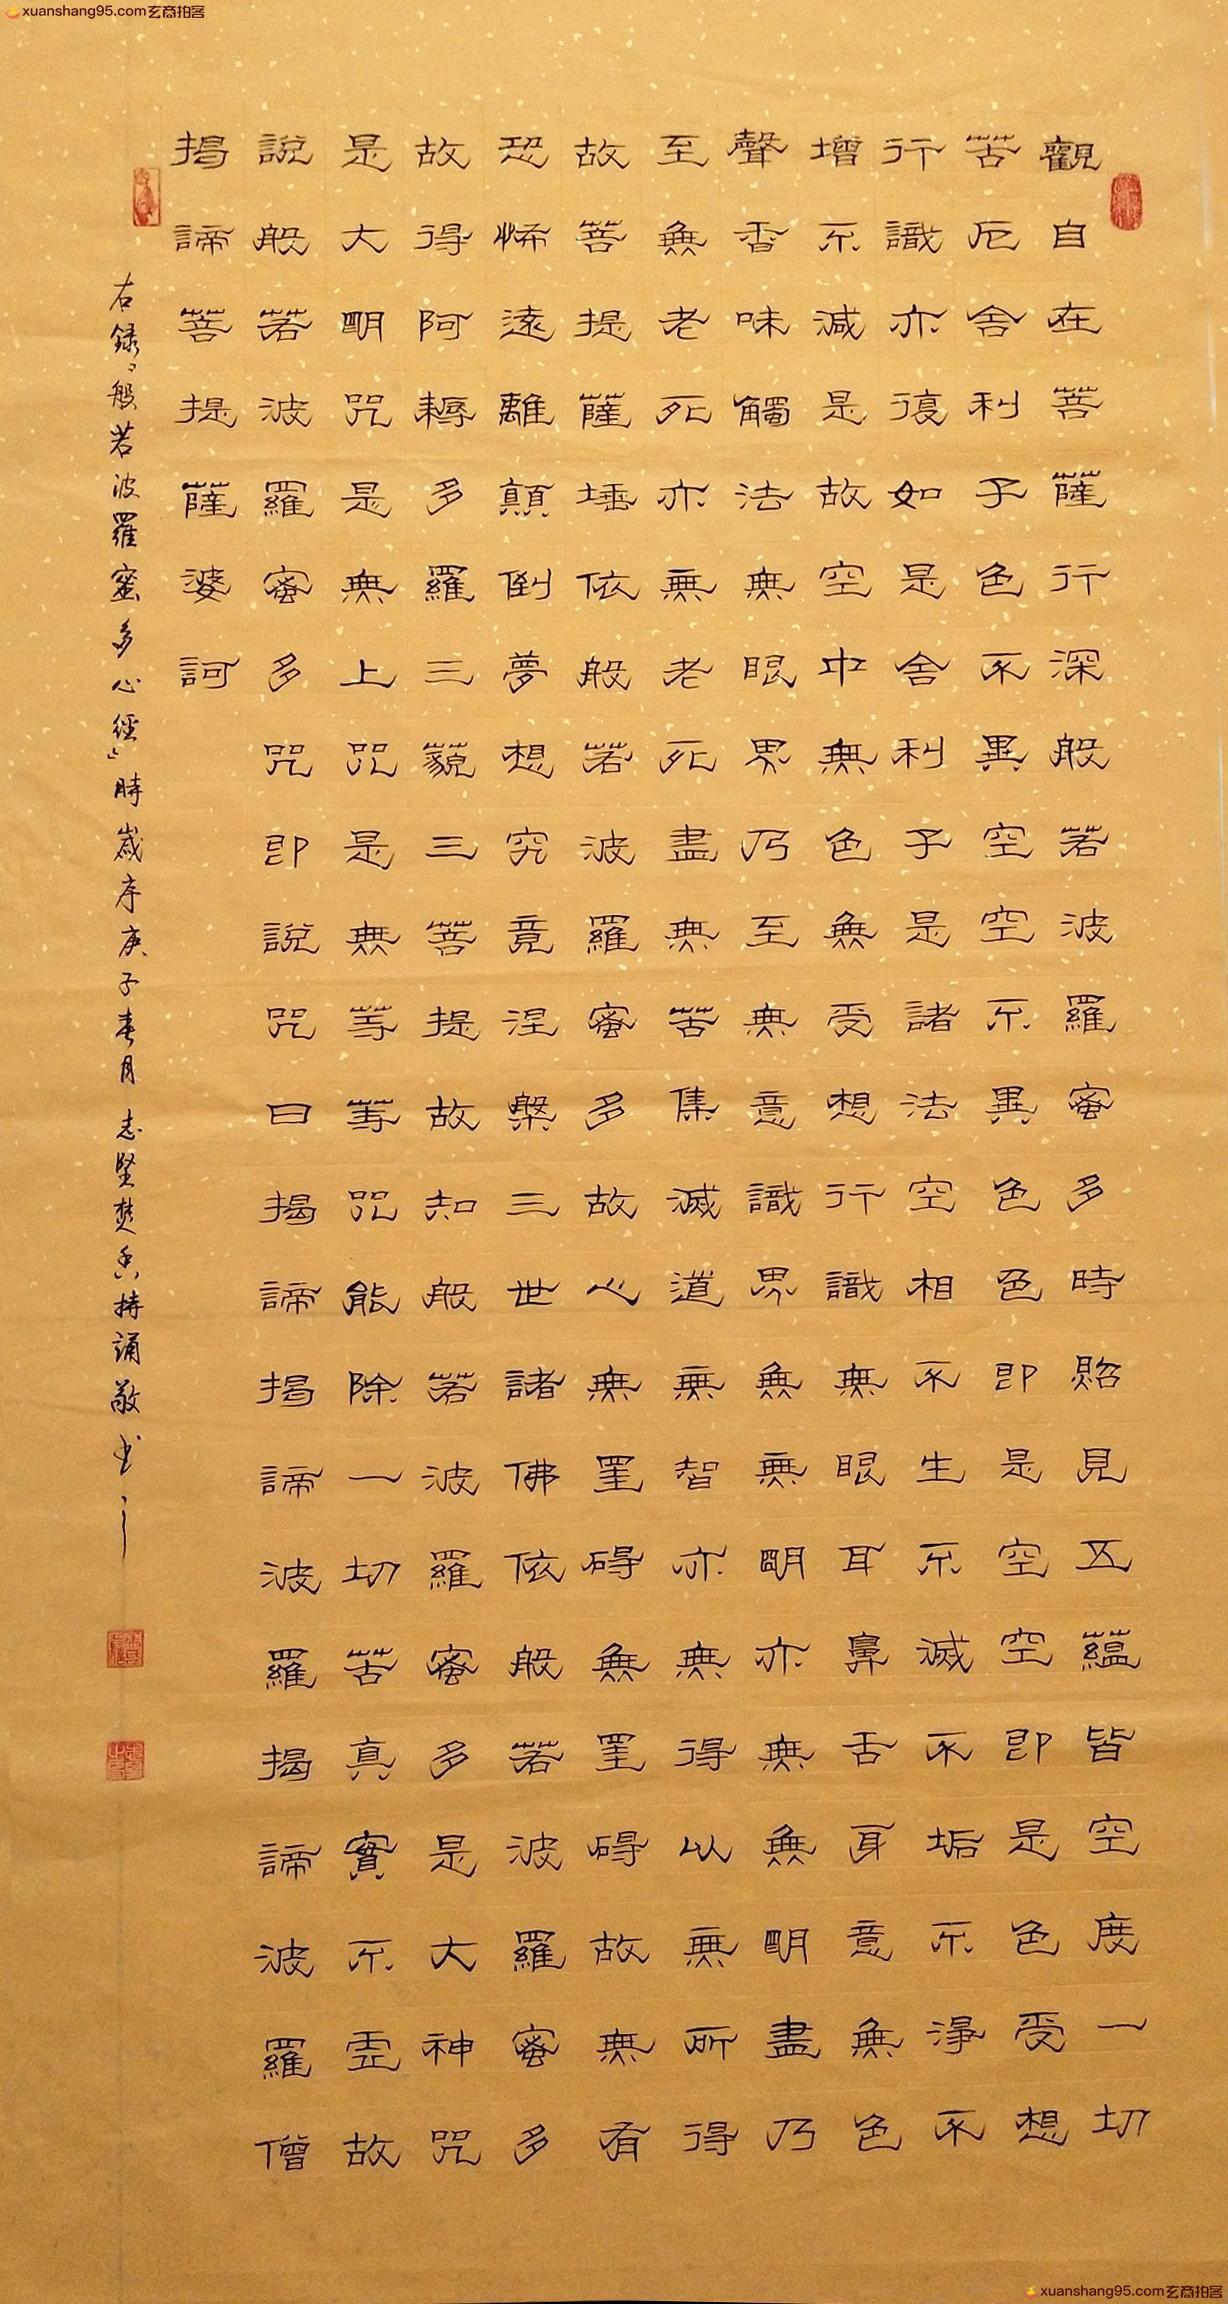 xuanshang95.com玄商拍客
觀自在菩薩行深般若波羅蜜多時照見五蘊皆空度一切
苦厄舍利子色不異空空不異色色即是空空即是色受想
行識亦復如是舍利子是諸法空相不生不滅不垢不淨不
增不減是故空中無色無受想行識無眼耳鼻舌身意無色
聲香味觸法無眼界乃至無意識界無無眀亦無無眀盡乃
至無老死亦無老死盡無苦集滅道無智亦無得以無所得
故菩提薩埵依般若波羅蜜多故心無罣碍無罣碍故無有
恐怖遠離顛倒夢想究竟涅槃三世諸佛依般若波羅蜜多
故得阿耨多羅三藐三菩提故知般若波羅蜜多是大神咒
是大眀咒是無上咒是無等等咒能除一切苦真實不虛故
說般若波羅蜜多咒即說咒曰揭諦揭諦波羅揭諦波羅僧
揭諦菩提薩婆訶
右録「般若波羅蜜多心經」時歲序庚子春月 志堅焚香持誦敬书
xuanshang95.com玄商拍客